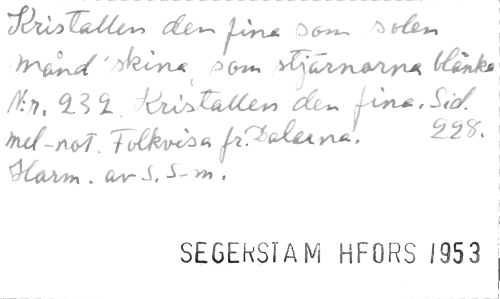 Kristallen den fina som solen
månd' skina, som stjärnorna blänka
N:r. 232. Kristallen den fina. Sid.
mel-not. Folkvisa fr. Dalarna. 228.
Harm. av S. S-m.
SEGERSTAM HFORS 1953